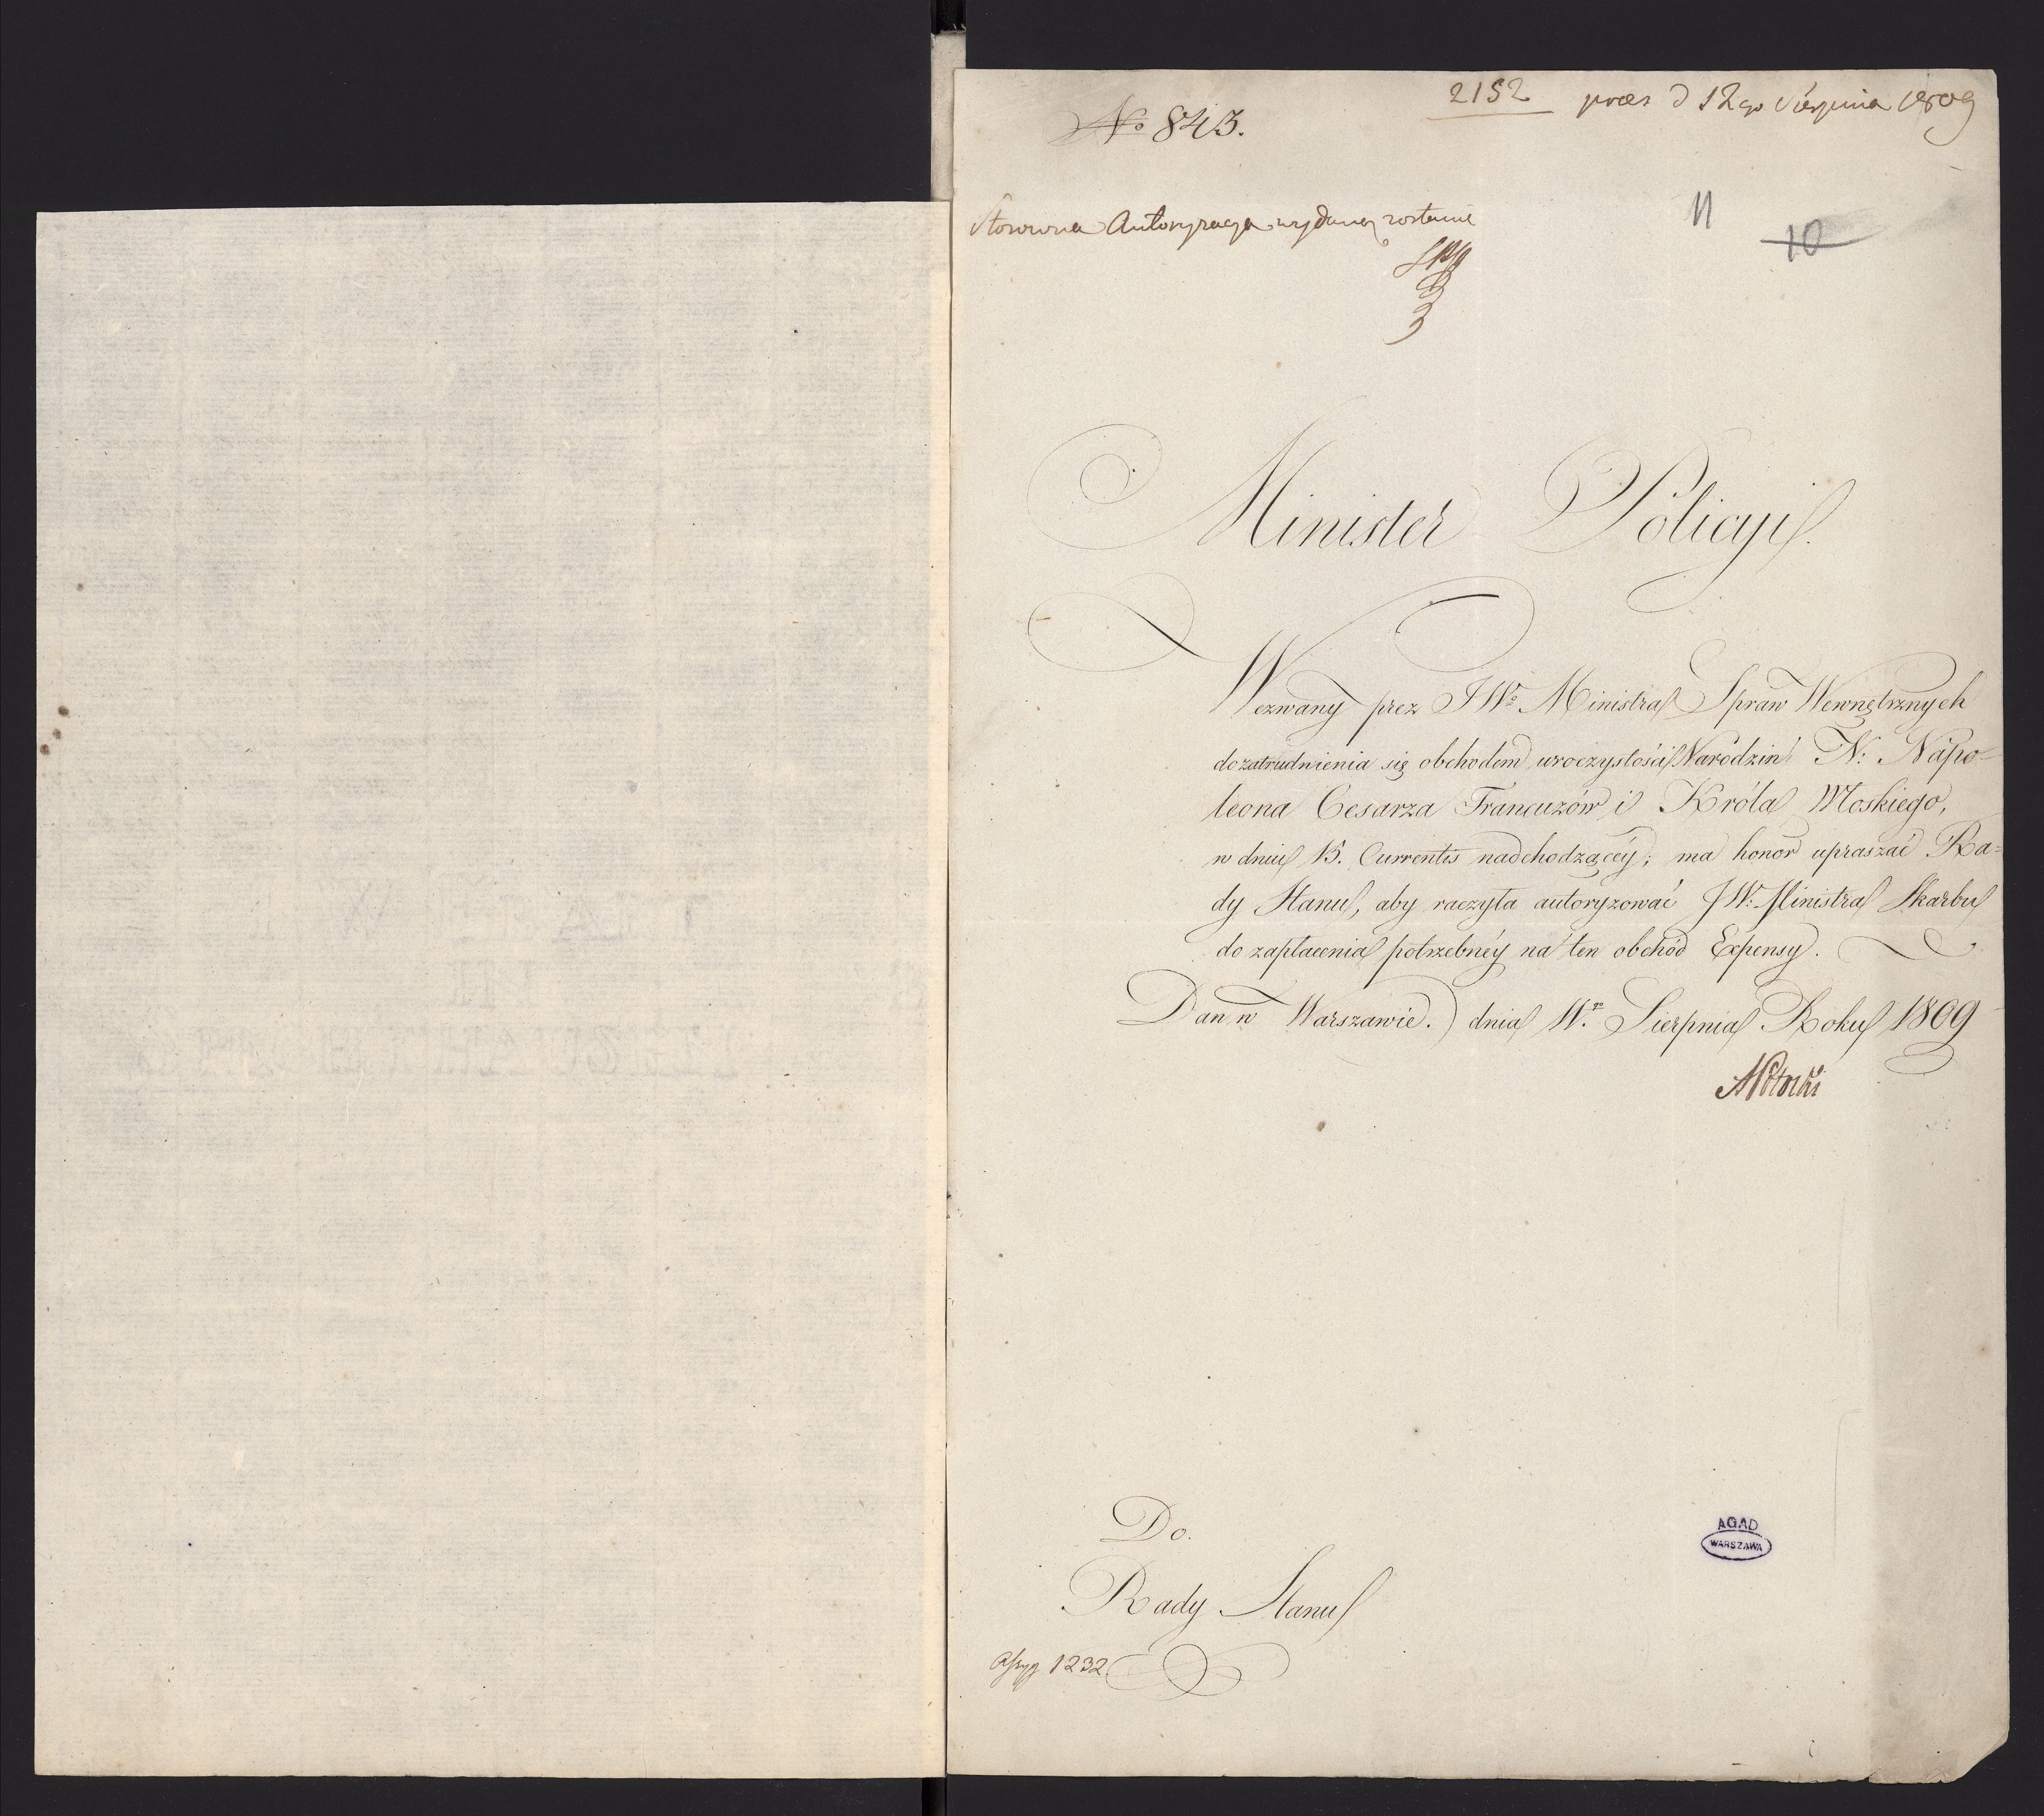 2152 præs d 12go Sierpnia 1809
No 843.
Stosowna Autoryzacya wydana zostanie
11
10
Minister Policyi.
Wezwany przez JWo Ministra Spraw Wewnętrznych
do zatrudnienia się obchodem uroczystości Narodzin N: Napo-
leona Cesarza Francuzów i Króla Włoskiego,
w dniu 15. Currentis nadchodzącéy; ma honor upraszać Ra=
dy Stanu, aby raczyła autoryzować JW: Ministra Skarbu
do zapłacenia potrzebnéy na ten obchód Expensy.
Dan w Warszawie. dnia 11.go Sierpnia Roku 1809
APotocki
AGAD
WARSZAWA
Do.
Rady Stanu
Assyg 1232